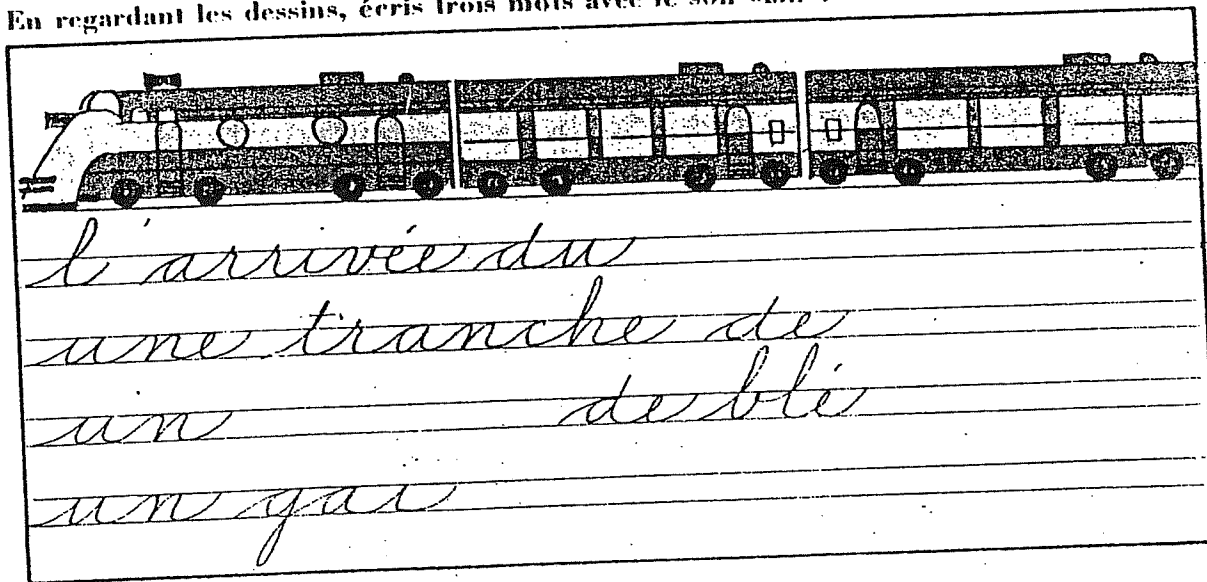 En regardant les dessins, écris trois mots avec le son
l'arrivée du
une tranche de
un de blé
un gai